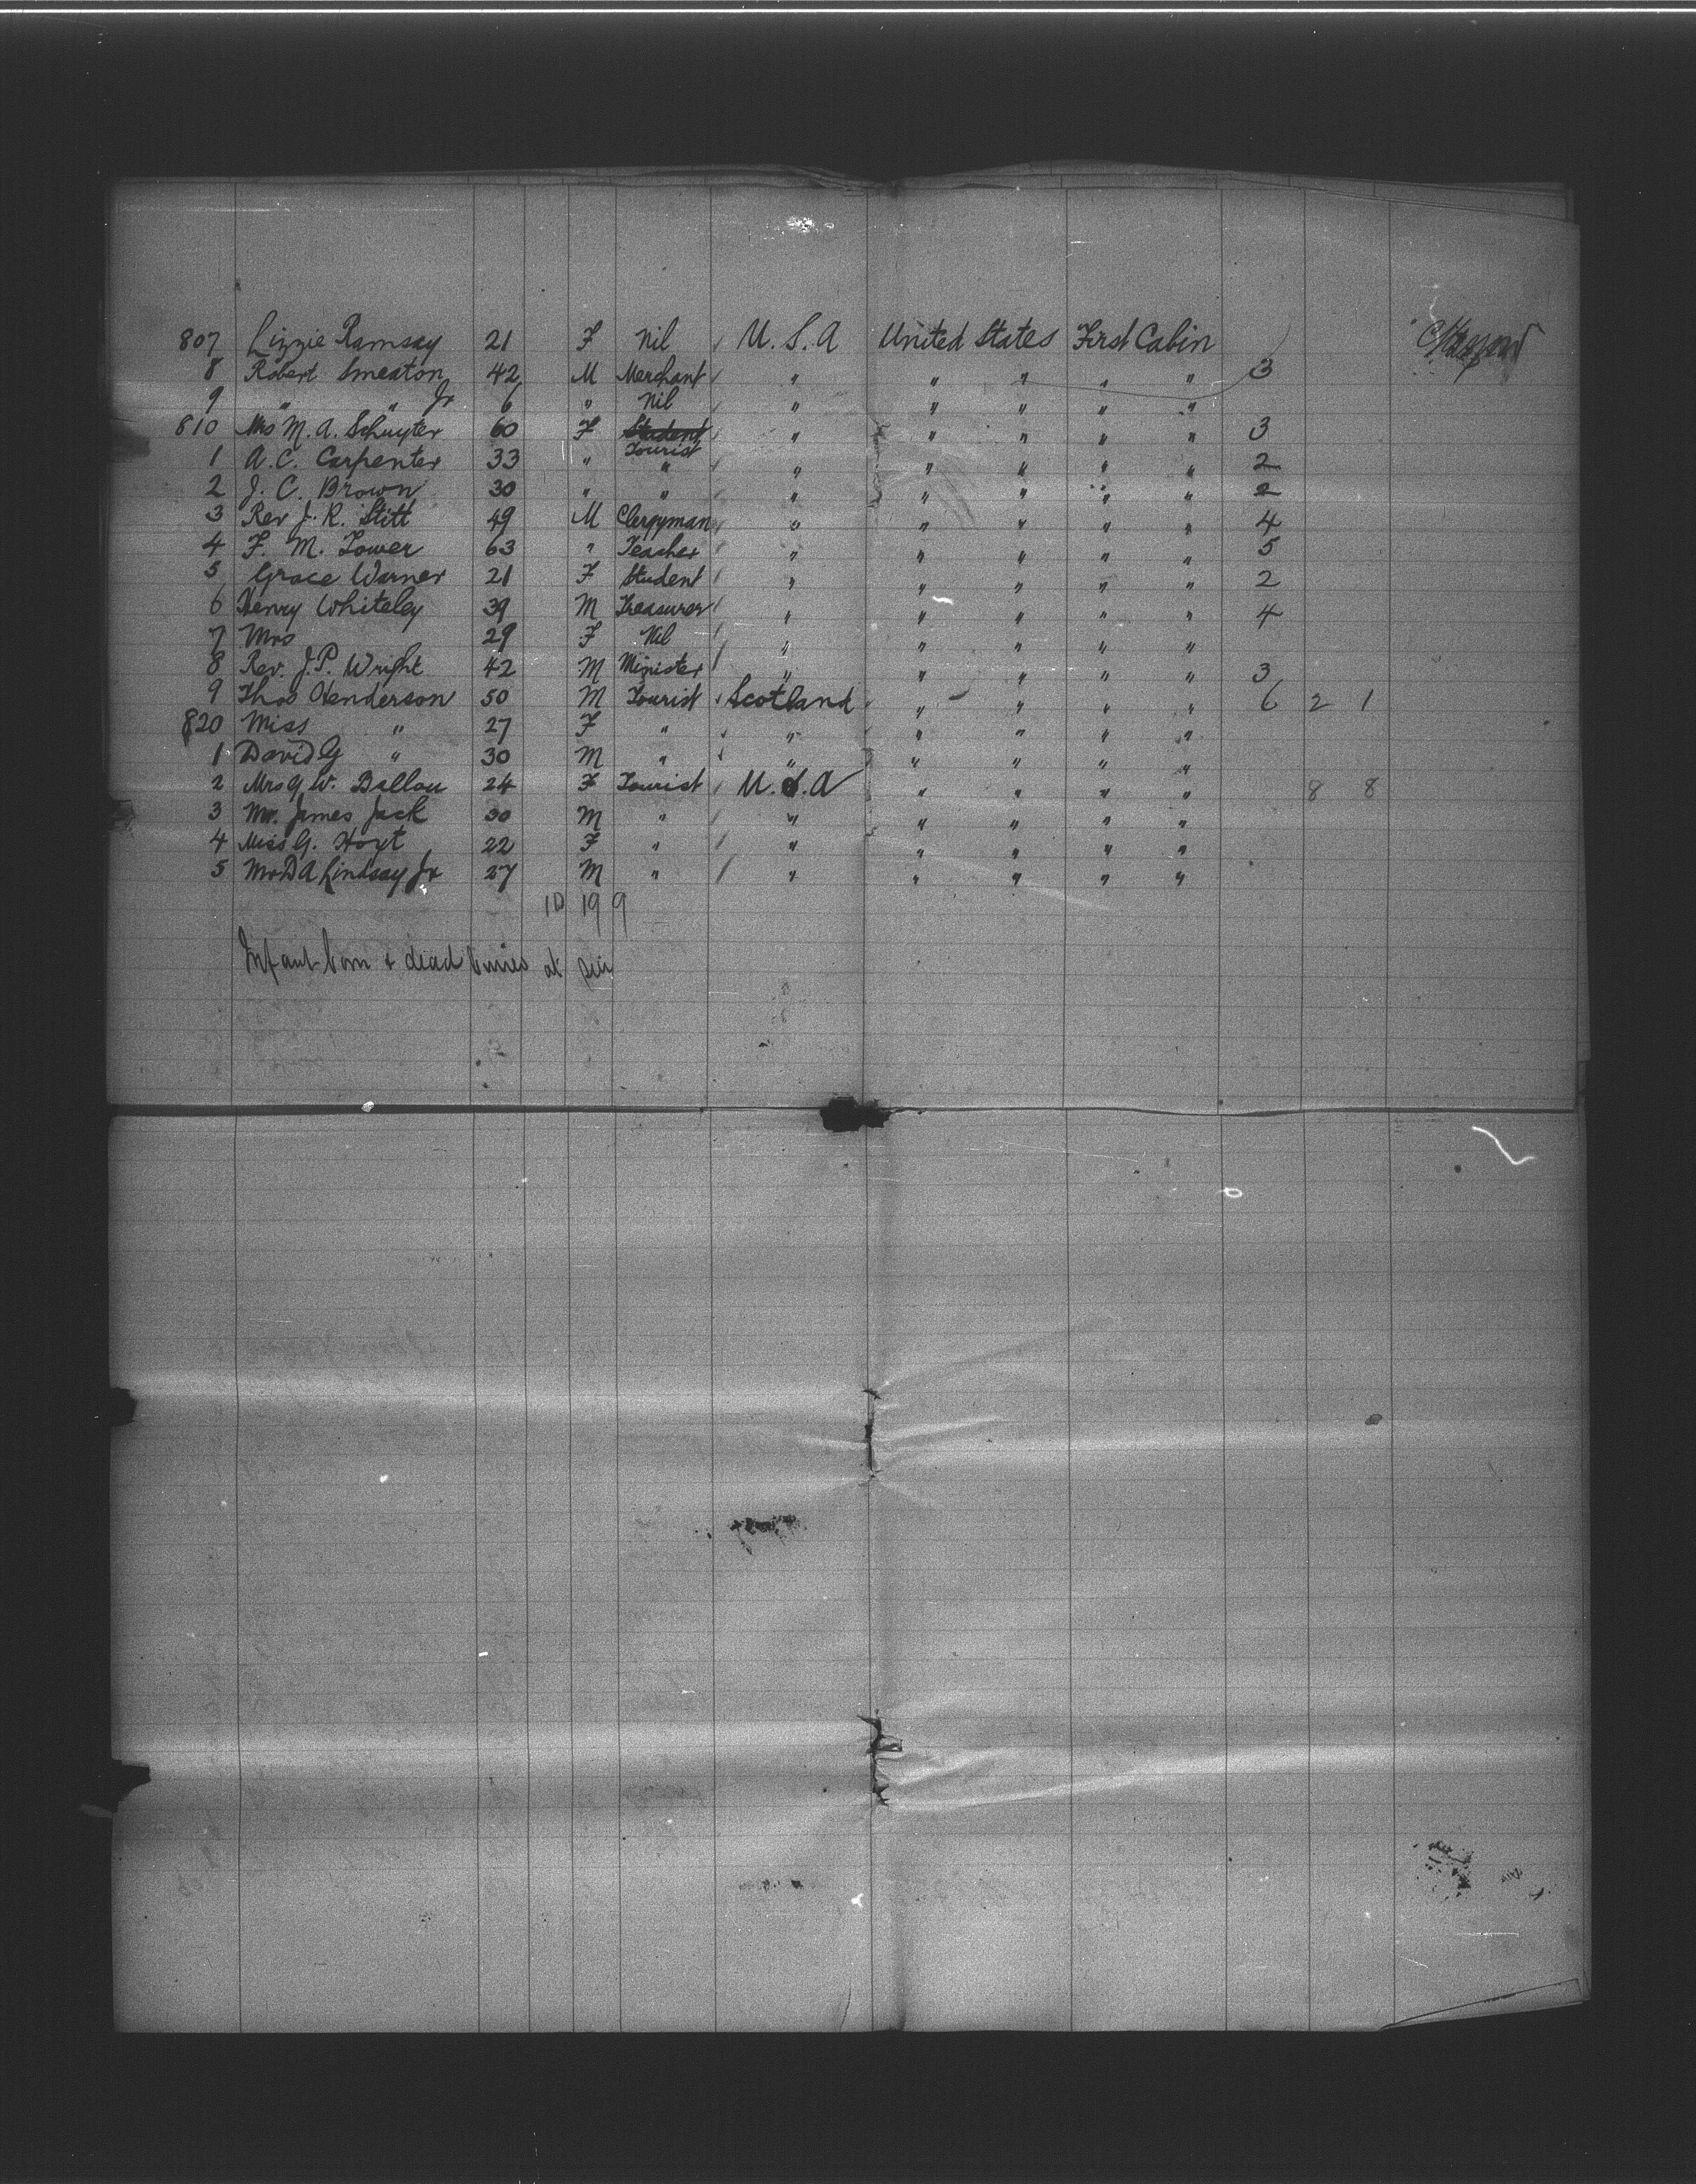 807 Lizzie Ramsay 21 F Nil U.S.A United States First Cabin
8 Robert Smeaton 42 M Merchant " " " " " 3
9 " " Jr 6 " Nil " " " " "
810 Mrs M. A. Schuyter 60 F Student Tourist " " " " " 3
1 A. C. Carpenter 33 " " " " " " " 2
2 J. C. Brown 30 " " " " " " " 2
3 Rev J. R. Stitt 49 M Clergyman " " " " " 4
4 F. M. Tower 63 " Teacher " " " " " 5
5 Grace Warner 21 F Student " " " " " 2
6 Henry Whiteley 39 M Treasurer " " " " " 4
7 Mrs 29 F Nil " " " " "
8 Rev. J. P. Wright 42 M Minister " " " " " 3
9 Thos Henderson 50 M Tourist Scotland " " " " 6 2 1
820 Miss " 27 F " " " " " "
1 David G " 30 M " " " " " "
2 Mrs G. W. Ballou 24 F Tourist U.S.A " " " " 8 8
3 Mr. James Jack 30 M " " " " " "
4 Miss G. Hoyt 22 F " " " " " "
5 Mr D A Lindsay Jr 27 M " " " " " "
10 19 9
Infant born & dead at sea